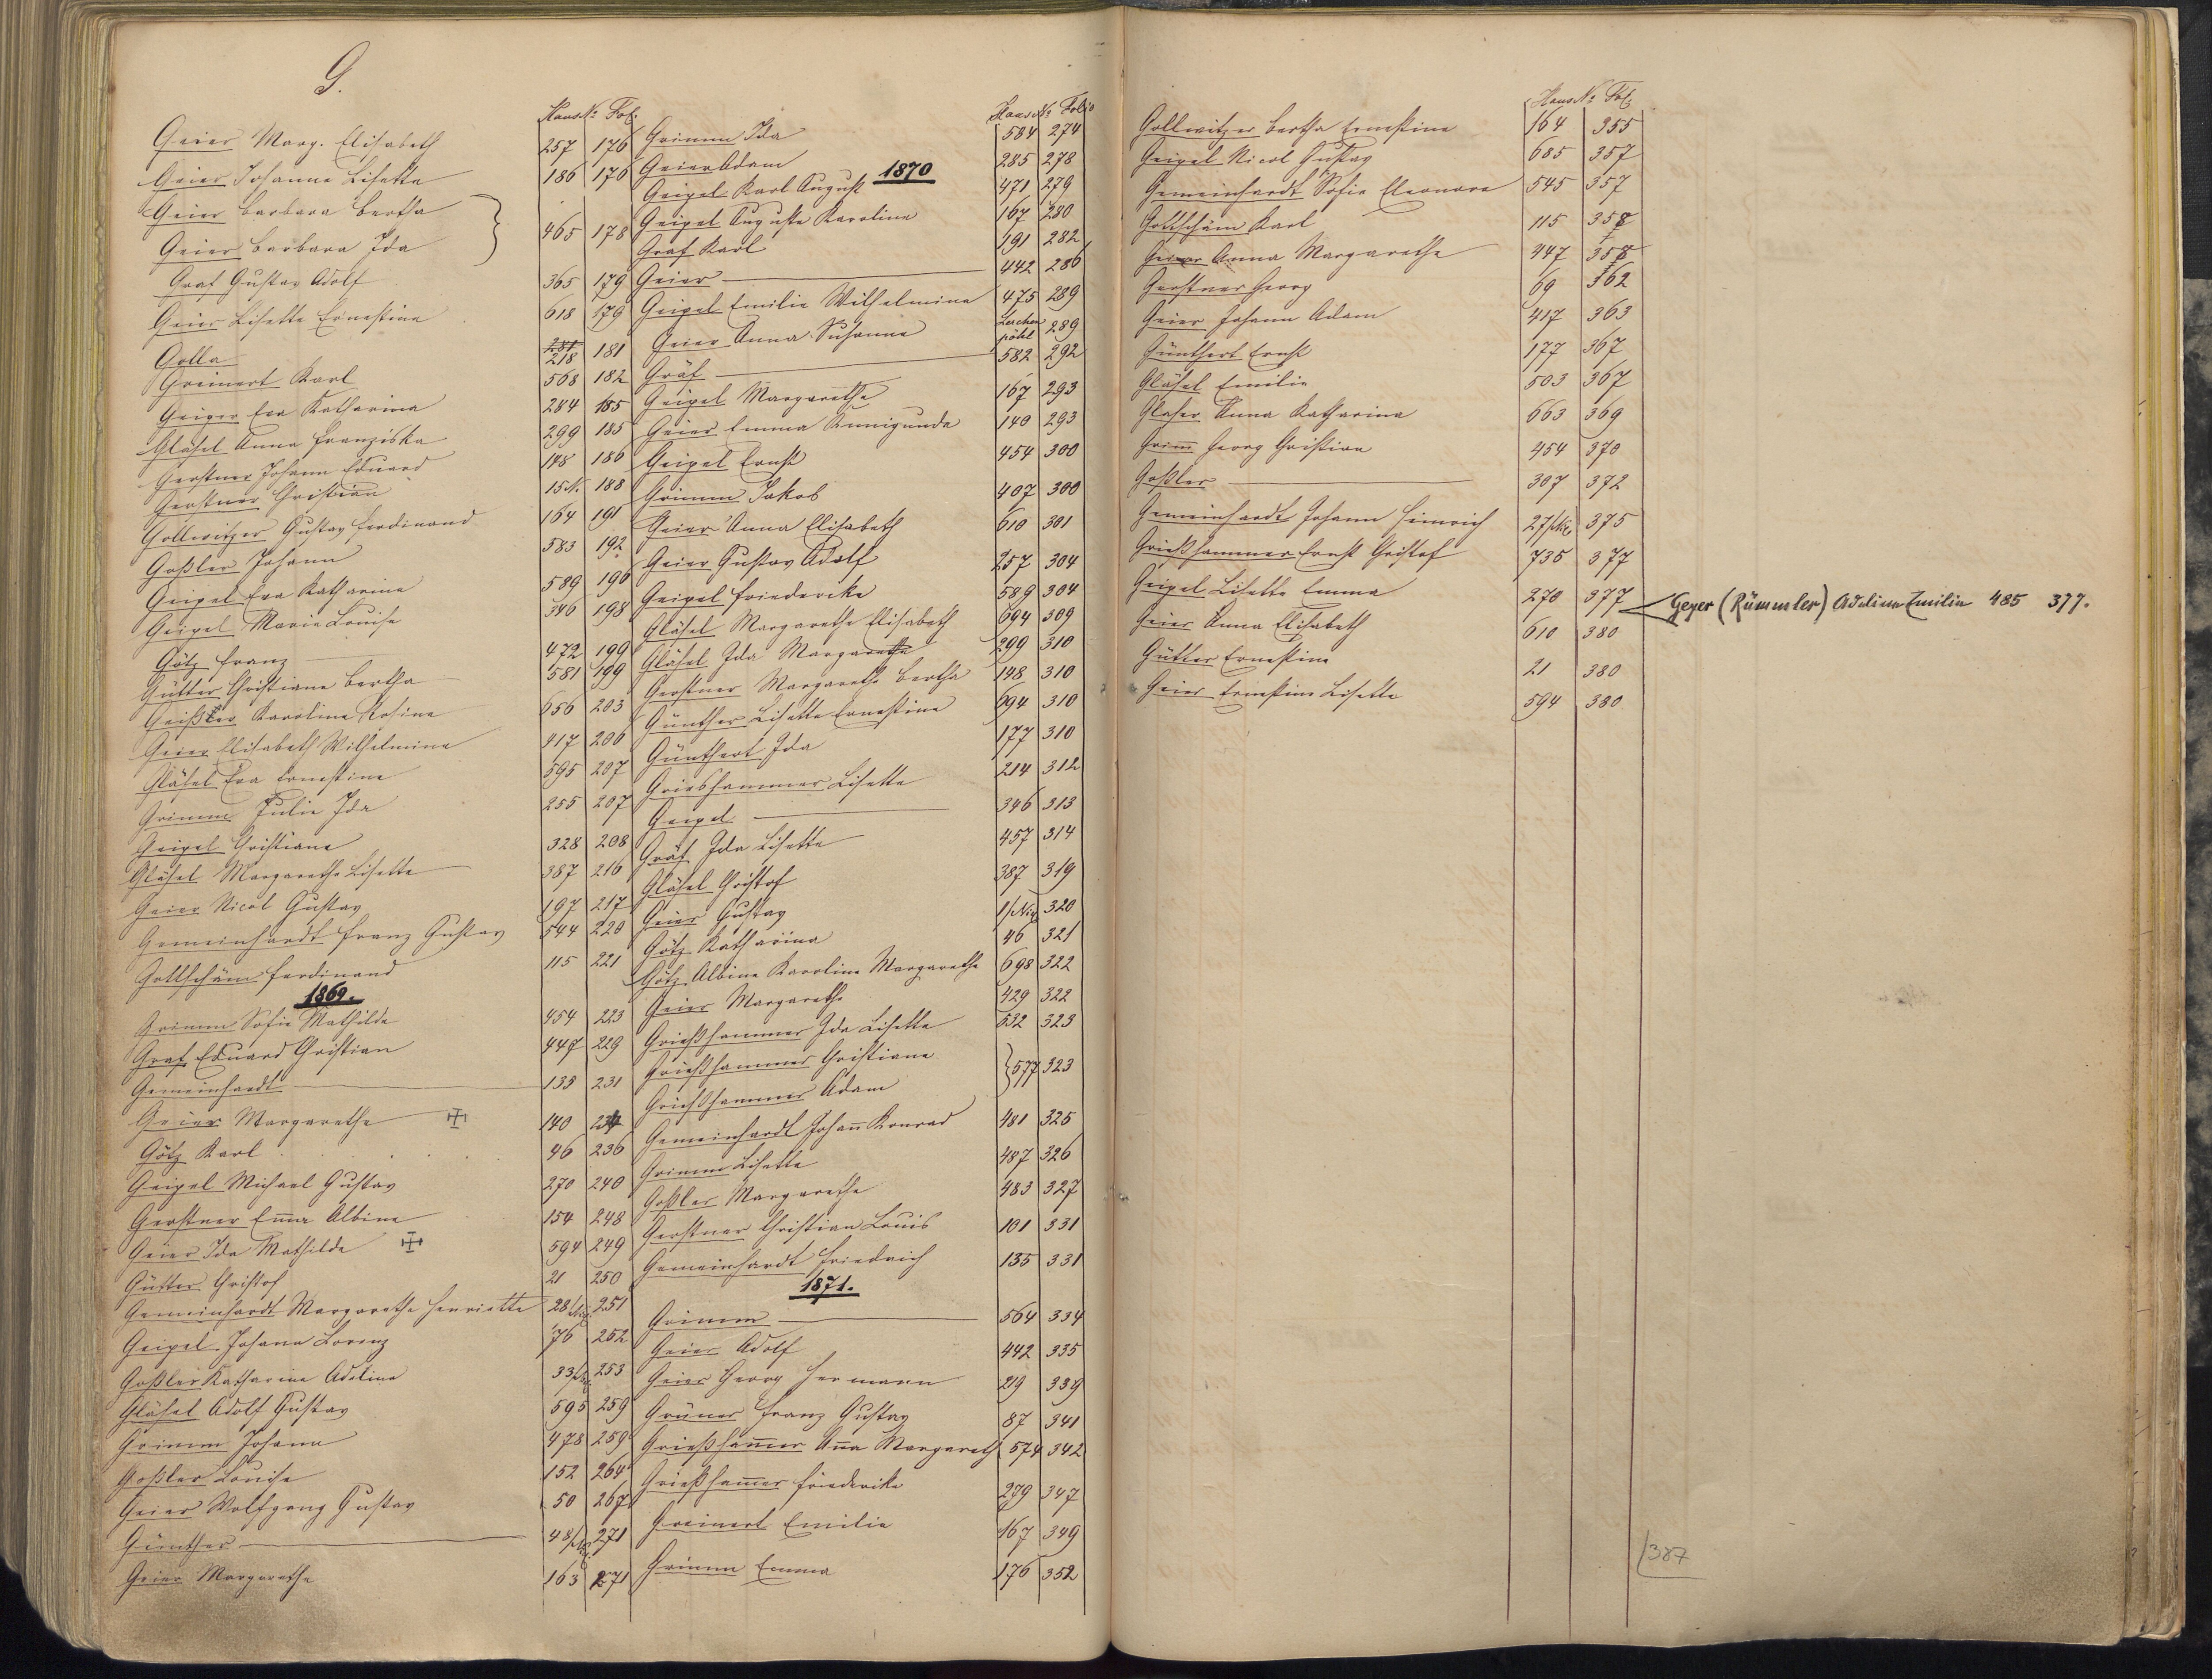 G.
Haus № Fol.
Geier Marg. Elisabeth 257 176
Geier Johanna Lisetta 186 176
Geier Barbara Bertha
Geier Barbara Ida } 465 178
Graf Gustav Adolf 365 179
Geier Lisetta Ernestine 618 179
Golla 218 181
Greinert Karl 568 182
Geiger Eva Katharina 284 185
Gläsel Anna Franziska 299 185
Gerstner Johann Eduard 148 186
Gerstner Christian 15 N. 188
Gollwitzer Gustav Ferdinand 164 191
Goßler Johann 583 192
Geipel Eva Katharine 589 196
Geipel Marie Louise 346 198
Götz Franz 472 199
Gütter Christiane Bertha 581 199
Geißler Karoline Rosine 656 203
Geier Elisabeth Wilhelmine 417 206
Gläsel Eva Ernestine 595 207
Grimm Julie Ida 255 207
Geipel Christiane 328 208
Gläsel Margarethe Lisette 387 216
Geier Nicol Gustav 197 217
Gemeinhardt Franz Gustav 544 220
Gottschäm Ferdinand 115 221
1869.
Grimm Sofie Mathilde 454 223
Graf Eduard Christian 447 229
Gemeinhardt 133 231
Geier Margarethe 140 234
Götz Karl 46 236
Geipel Michael Gustav 270 240
Gerstner Em̄a Albine 154 248
Geier Ida Mathilde 594 249
Gütter Christof 21 250
Gemeinhardt Margarethe Henriette 28/Nix. 251
Geipel Johann Lorenz 76 252
Goßler Katharine Adeline 33/Nix. 253
Gläsel Adolf Gustav 595 259
Grimm Johann 478 259
Goßler Louise 152 264
Geier Wolfgang Gustav 50 267
Günther 48/Nix. 271
Geier Margarethe 163 271
Haus № Folio
Grimm Ida 584 274
1870
Geier Adam 285 278
Geipel Karl August 471 279
Geipel Auguste Karoline 167 280
Graf Karl 191 282
Geier 442 286
Geipel Emilie Wilhelmine 475 289
Geier Anna Susanne Lerchenpöhl 289
Gräf 582 292
Geipel Margarethe 167 293
Geier Emma Kunigunda 140 293
Geipel Ernst 454 300
Grimm Jakob 407 300
Geier Anna Elisabeth 610 301
Geier Gustav Adolf 257 304
Geipel Friedericke 589 304
Gläsel Margarethe Elisabeth 694 309
Gläsel Ida Margarethe 299 310
Gerstner Margarethe Bertha 148 310
Günther Lisette Ernestine 694 310
Günthert Ida 177 310
Grieshammer Lisette 214 312
Geipel 346 313
Gräf Ida Lisette 457 314
Gläsel Christof 387 319
Geier Gustav 1/Nix 320
Götz Katharina 46 321
Götz Albine Karoline Margarethe 698 322
Geier Margarethe 429 322
Grießhammer Ida Lisette 532 323
Grießhammer Christiane
Grießhammer Adam } 577 323
Gemeinhardt Johan̄ Konrad 481 325
Grimm Lisette 487 326
Goßler Margarethe 483 327
Gerstner Christian Louis 101 331
Gemeinhardt Friedrich 135 331
1871.
Grimm 564 334
Geier Adolf 442 335
Geier Georg Hermann 219 339
Grüner Franz Gustav 87 341
Grießham̄er An̄a Margareth 574 342
Grießham̄er Friedericke 279 347
Greinert Emilie 167 349
Grimm Emma 176 352
Haus № Fol.
Gollwitzer Bertha Ernestine 164 355
Geipel Nicol Gustav 685 357
Gemeinhardt Sofie Eleonore 545 357
Gottschäm Karl 115 358
Geier Anna Margarethe 447 358
Gerstner Georg 69 362
Geier Johann Adam 417 363
Günthert Ernst 177 367
Gläsel Emilie 503 367
Glaser Anna Katharina 663 369
Grim̄ Georg Christian 454 370
Goßler 307 372
Gemeinhardt Johann Heinrich 27/Nix 375
Grießhammer Ernst Christof 735 377
Geipel Lisette Emma 270 377
Geyer (Rümmler) Adeline Emilie 485 377.
Geier Anna Elisabeth 610 380
Gütter Ernestine 21 380
Geier Ernestine Lisette 594 380
387